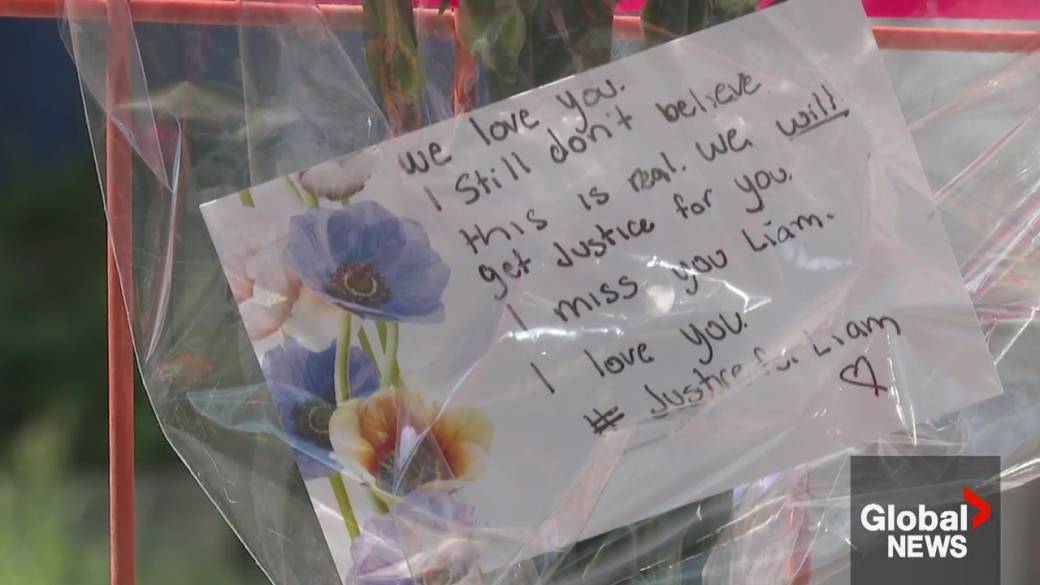 we love you.
I Still don't believe
this is real. We will
get Justice for you.
I miss you Liam.
I love you.
# Justice for Liam
Global
NEWS